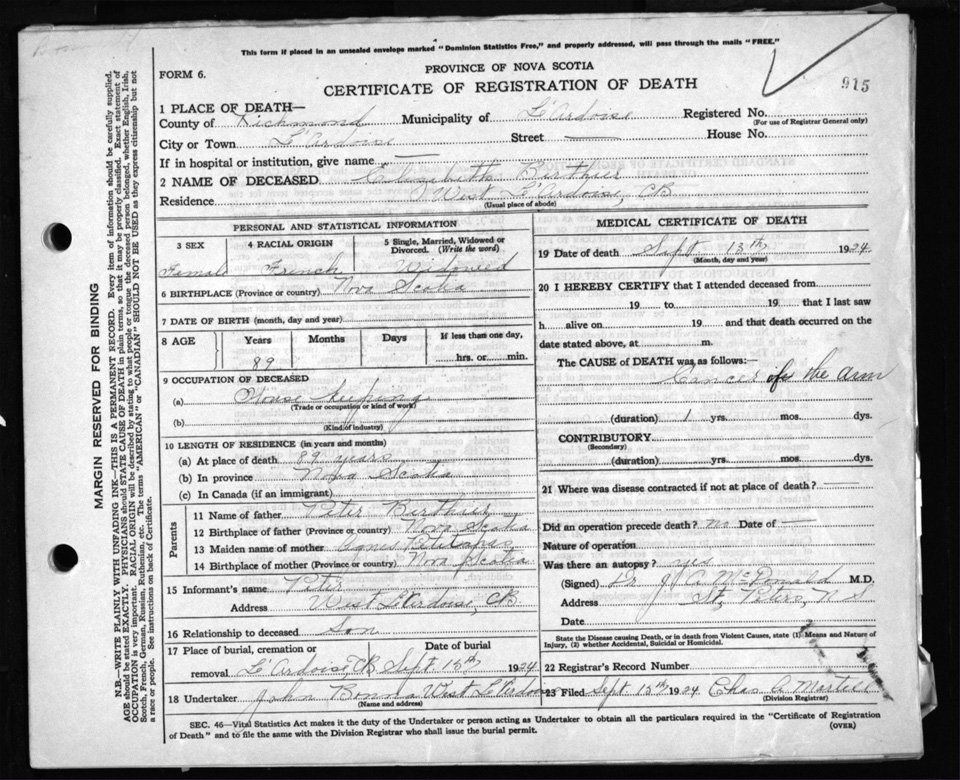 This form if placed in an unsealed envelope marked "Dominion Statistics Free," and properly addressed, will pass through the mails "FREE."
PROVINCE OF NOVA SCOTIA
FORM 6.
CERTIFICATE OF REGISTRATION OF DEATH
915
1 PLACE OF DEATH—
County of Richmond Municipality of L'Ardoise Registered No.
(For use of Registrar General only)
City or Town L'Ardoise Street — House No.
If in hospital or institution, give name —
2 NAME OF DECEASED Elizabeth Birthier
Residence West L'Ardoise, CB
(Usual place of abode)
MARGIN RESERVED FOR BINDING
N.B.—WRITE PLAINLY WITH UNFADING INK—THIS IS A PERMANENT RECORD. Every item of information should be carefully supplied.
AGE should be stated EXACTLY. PHYSICIANS should STATE CAUSE OF DEATH in plain terms, so that it may be properly classified. Exact statement of
OCCUPATION is very important. RACIAL ORIGIN will be described by stating to what people or tongue the deceased person belonged, whether English, Irish,
Scotch, French, German, Russian, Ruthenian, etc. The terms "AMERICAN" or "CANADIAN" SHOULD NOT BE USED as they express citizenship but not
a race or people. See instructions on back of Certificate.
PERSONAL AND STATISTICAL INFORMATION
3 SEX
4 RACIAL ORIGIN
5 Single, Married, Widowed or Divorced. (Write the word)
Female French Widowed
6 BIRTHPLACE (Province or country) Nova Scotia
7 DATE OF BIRTH (month, day and year)
8 AGE Years Months Days If less than one day,
89 hrs. or min.
9 OCCUPATION OF DECEASED
(a) House keeping
(Trade or occupation or kind of work)
(b)
(Kind of industry)
10 LENGTH OF RESIDENCE (in years and months)
(a) At place of death 89 years
(b) In province Nova Scotia
(c) In Canada (if an immigrant)
Parents
11 Name of father Peter Birthier
12 Birthplace of father (Province or country) Nova Scotia
13 Maiden name of mother
14 Birthplace of mother (Province or country) Nova Scotia
15 Informant's name Peter
Address West L'Ardoise, CB
16 Relationship to deceased Son
17 Place of burial, cremation or Date of burial
removal L'Ardoise, CB Sept 15th 1924
18 Undertaker John West L'Ardoise
(Name and address)
MEDICAL CERTIFICATE OF DEATH
19 Date of death Sept 13th 1924
(Month, day and year)
20 I HEREBY CERTIFY that I attended deceased from
19 to 19 that I last saw
h alive on 19 and that death occurred on
date stated above, at m.
The CAUSE of DEATH was as follows:—
Cancer of the arm
(duration) 1 yrs. mos. dys.
CONTRIBUTORY
(Secondary)
(duration) yrs. mos. dys.
21 Where was disease contracted if not at place of death? —
Did an operation precede death? no Date of —
Nature of operation
Was there an autopsy?
(Signed) Dr J. C. McDonald M.D.
Address St. Peters, N S
Date
State the Disease causing Death, or in death from Violent Causes, state (1) Means and Nature of
Injury, (2) whether Accidental, Suicidal or Homicidal.
22 Registrar's Record Number
23 Filed Sept. 15th 1924 Chas A Martell
(Division Registrar)
SEC. 46—Vital Statistics Act makes it the duty of the Undertaker or person acting as Undertaker to obtain all the particulars required in the "Certificate of Registration
of Death" and to file the same with the Division Registrar who shall issue the burial permit.
(OVER)